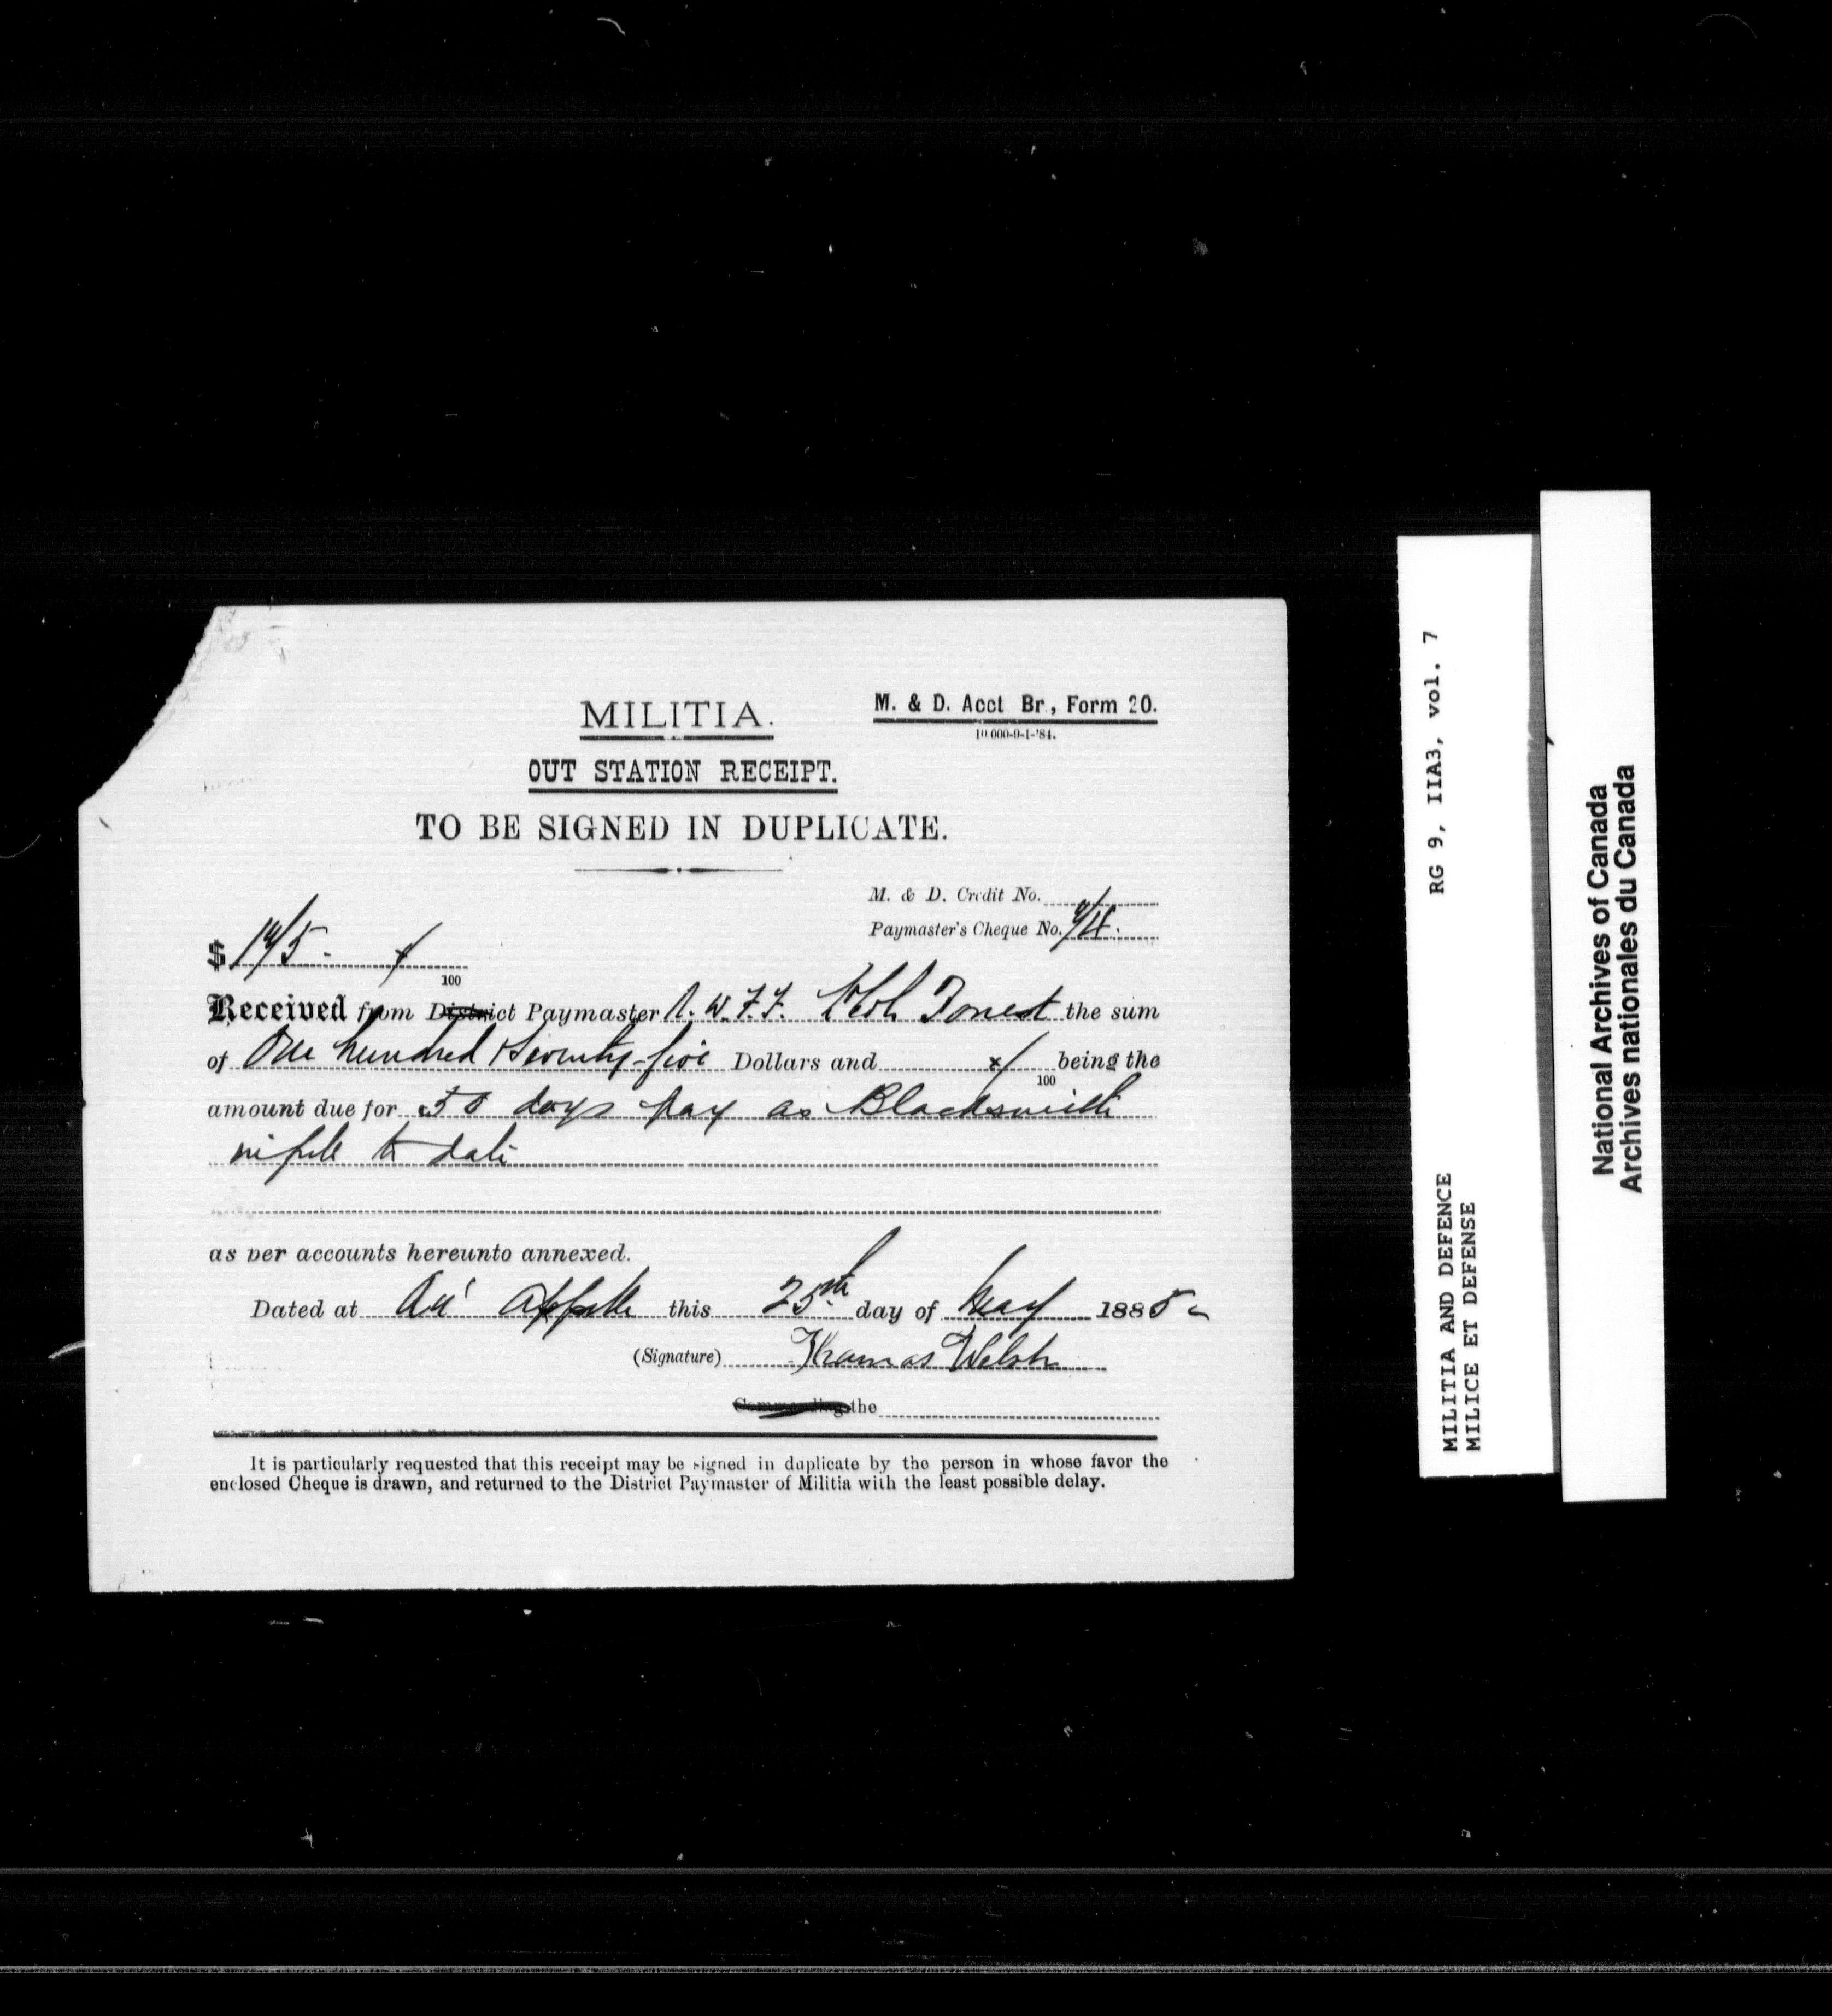 MILITIA.
M. & D. Acct Br., Form 20.
10 000-9-1-'84.
OUT STATION RECEIPT.
TO BE SIGNED IN DUPLICATE.
M. & D. Credit No.
Paymaster's Cheque No.
$ 175 - x/100
Received from District Paymaster N. W. F. F. Forrest the sum
of One hundred & seventy-five Dollars and x/100 being the
amount due for 50 days pay as Blacksmith
to date
as per accounts hereunto annexed.
Dated at Qu' Appelle this 25th day of May 1885
(Signature) Thomas Welsh
Commanding the
It is particularly requested that this receipt may be signed in duplicate by the person in whose favor the
enclosed Cheque is drawn, and returned to the District Paymaster of Militia with the least possible delay.
RG 9, IIA3, vol. 7
MILITIA AND DEFENCE
MILICE ET DEFENSE
National Archives of Canada
Archives nationales du Canada